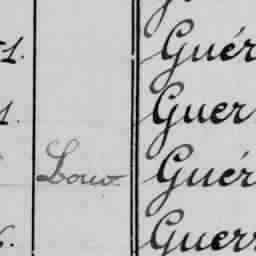 1. Guér
1. Guer
Louv. Guér
Guerr